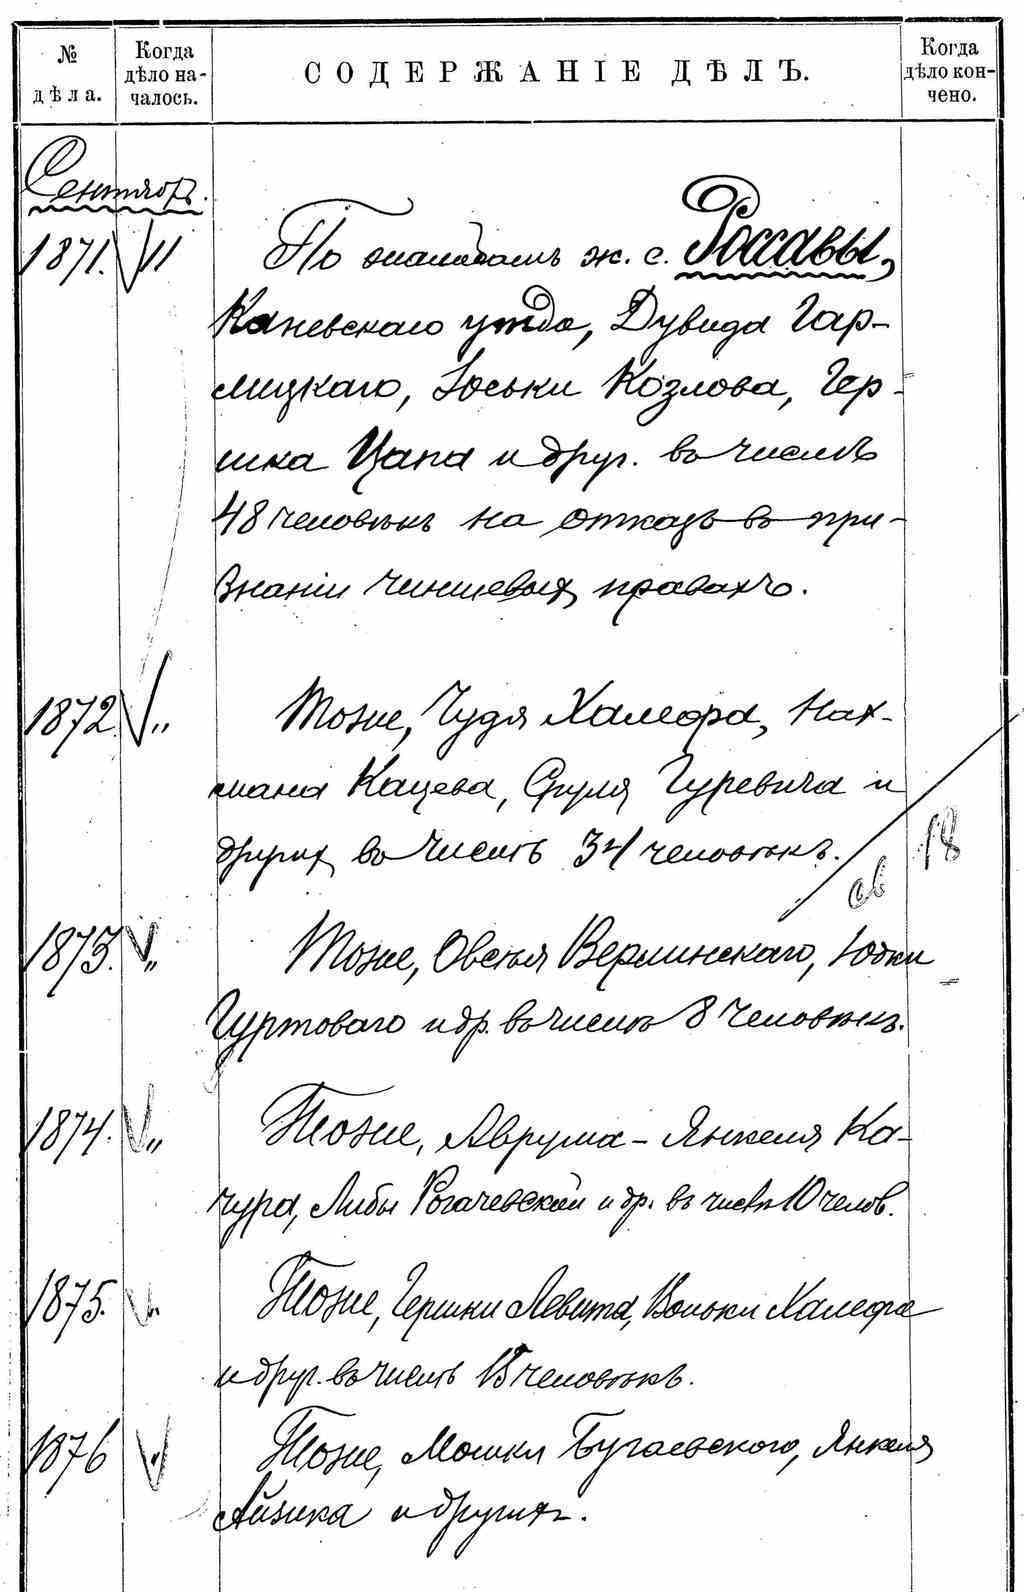 № дѣла.
Когда дѣло на-
чалось.
СОДЕРЖАНІЕ ДѢЛЪ.
Когда дѣло кон-
чено.
Сентябрь
1871. 11 По ж. с. Россавы,
Каневскаго уѣзда, Дувида Гар-
лицкаго, Іоськи Козлова, Гер-
шка Цапа и друг. въ числѣ
48 человѣкъ на отказъ въ при-
знаніи чиншевыхъ правахъ.
1872. " Тоже, Чудя Халефа, Нах-
мана Кацева, Сруля Гуревича и
другихъ въ числѣ 34 человѣкъ.
18
1873. " Тоже, Овсѣя Верлинскаго, Юдки
Гуртоваго и др. въ числѣ 8 человѣкъ.
1874. " Тоже, Аврума-Янкеля Ка-
чура, Либы Рогачевской и др. въ числѣ 10 челов.
1875. " Тоже, Гершки Левита, Вольки Халефа
и друг. въ числѣ 15 человѣкъ.
1876 " Тоже, Мошки Бугаевского, Янкеля
Айзика и другихъ.